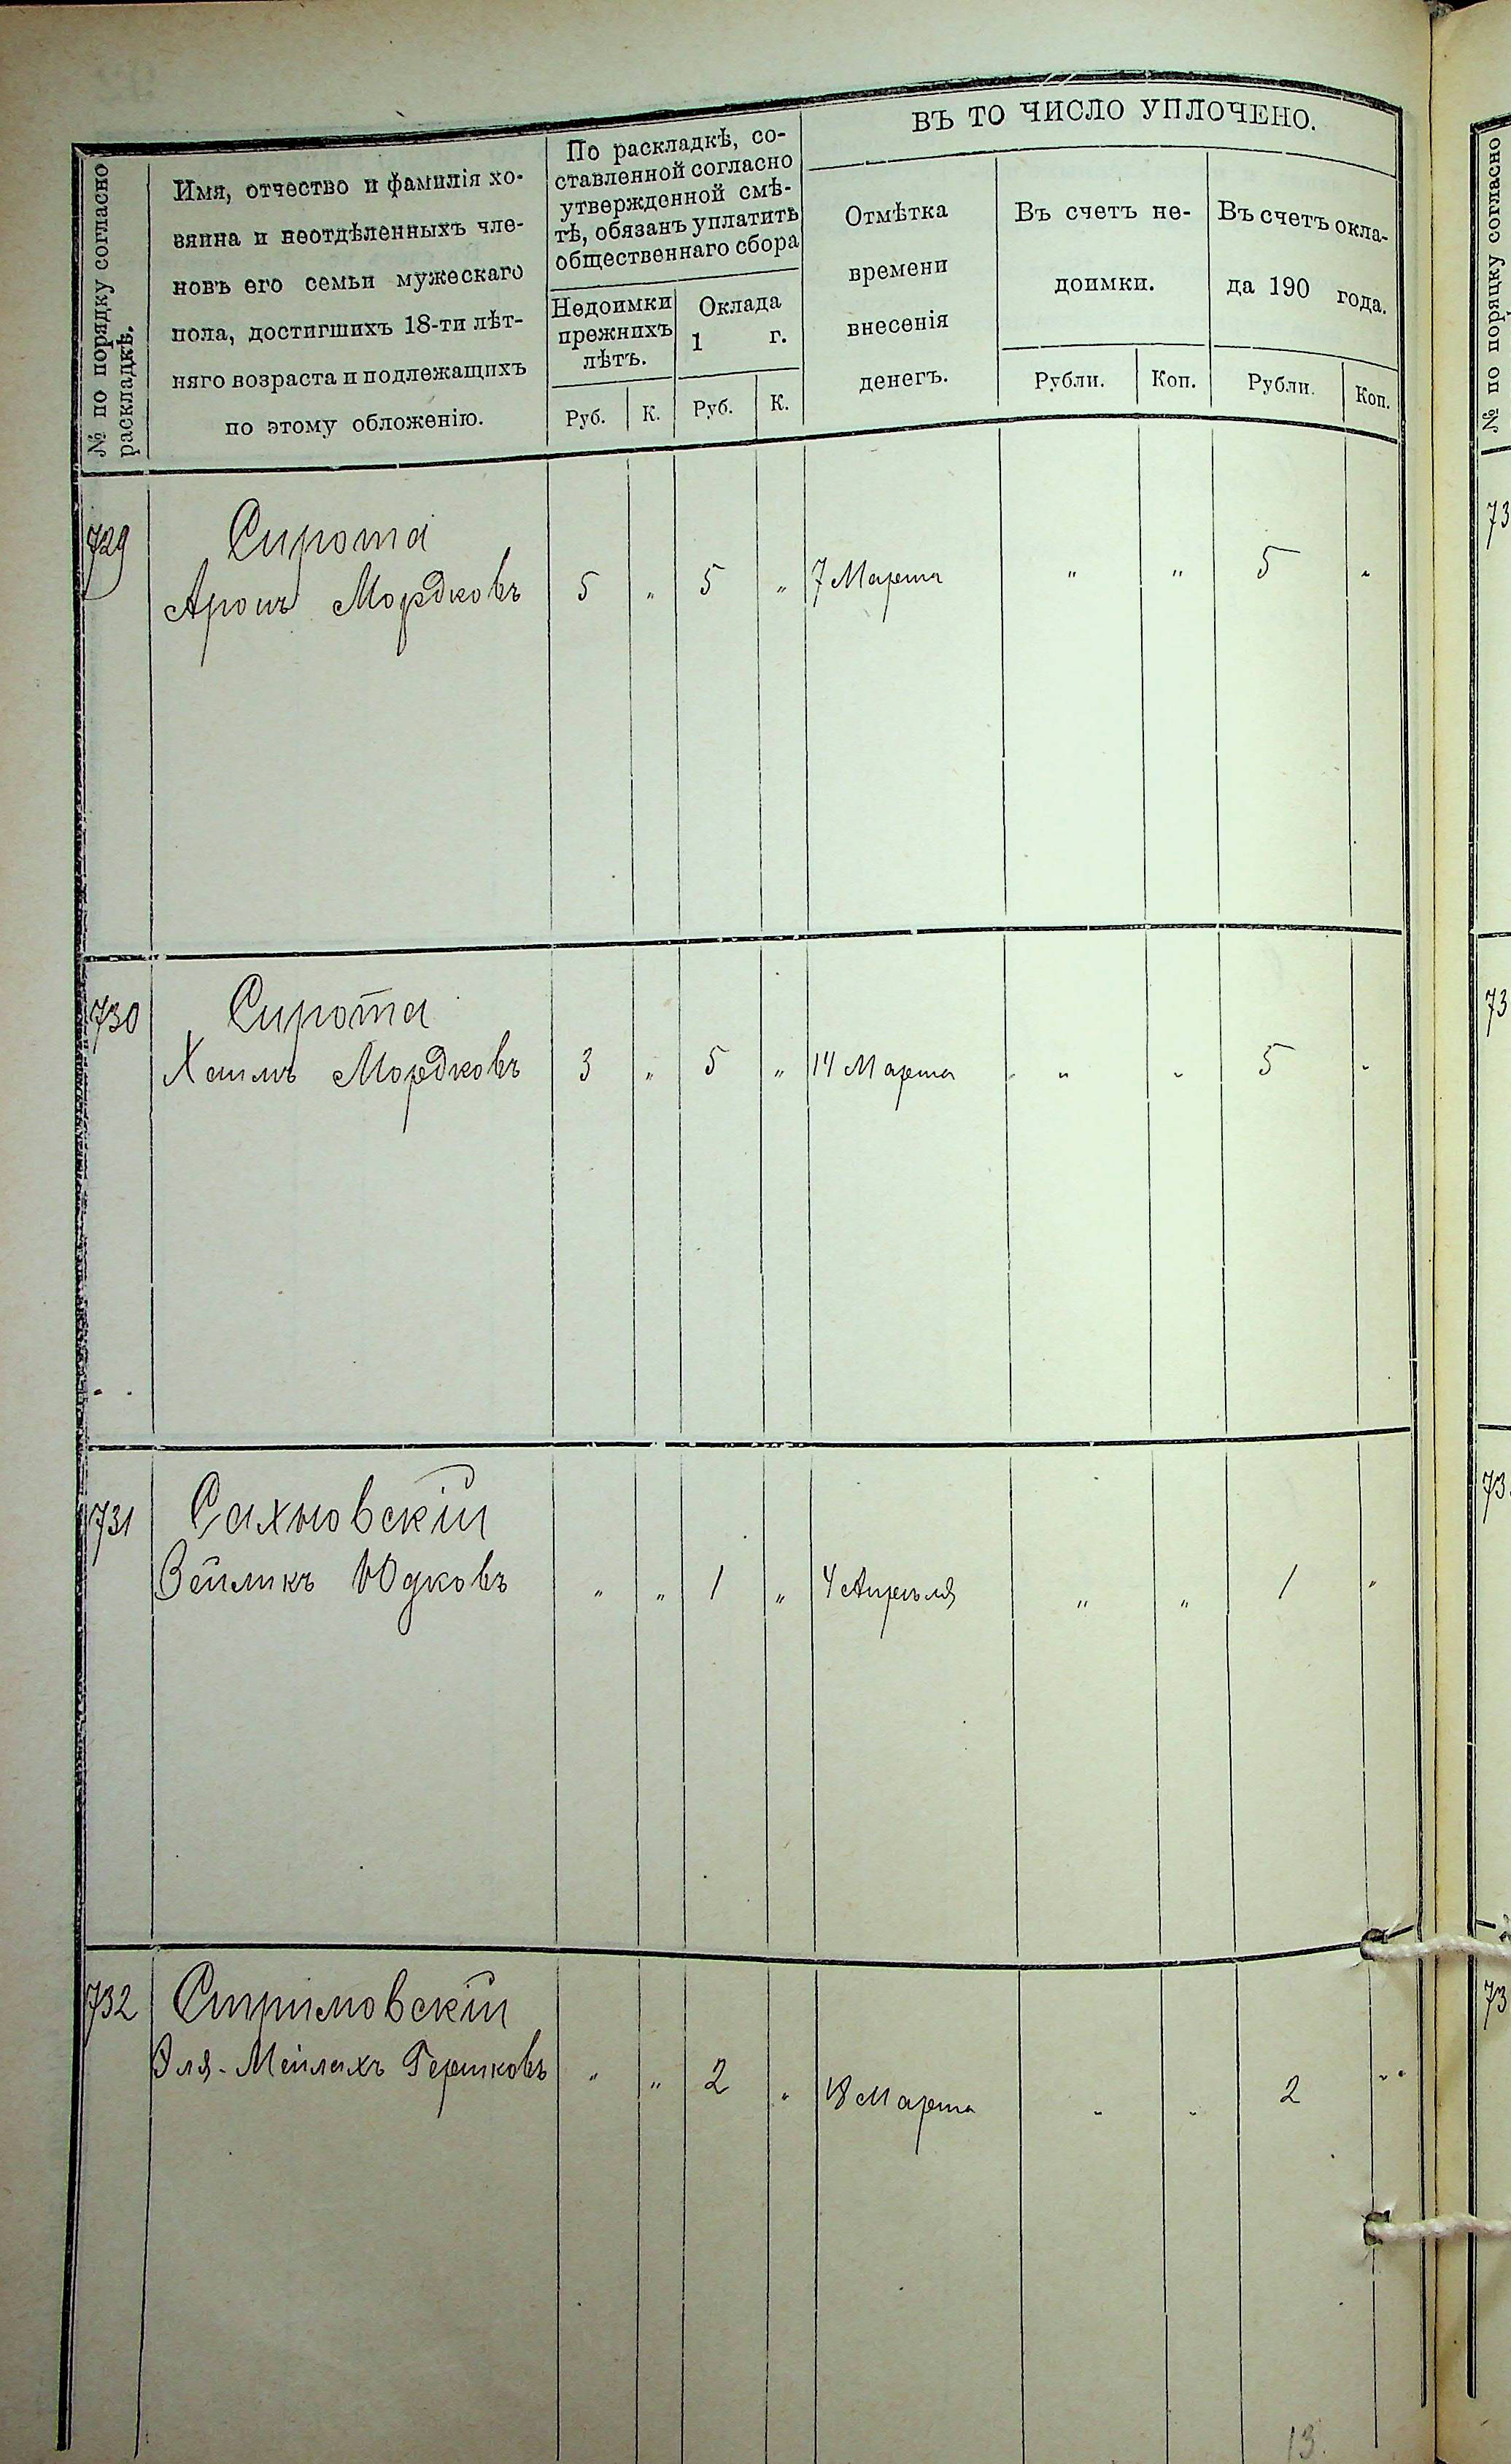 № по порядку согласно
раскладкѣ.
Имя, отчество и фамилія хо-
зяина и неотдѣленныхъ чле-
новъ его семьи мужескаго
пола, достигшихъ 18-ти лѣт-
няго возраста и подлежащихъ
по этому обложенію.
По раскладкѣ, со-
ставленной согласно
утвержденной смѣ-
тѣ, обязанъ уплатить
общественнаго сбора
Недоимки
прежнихъ
лѣтъ.
Руб. К.
Оклада
1 г.
Руб. К.
ВЪ ТО ЧИСЛО УПЛОЧЕНО.
Отмѣтка
времени
внесенія
денегъ.
Въ счетъ не-
доимки.
Рубли. Коп.
Въ счетъ окла-
да 190 года.
Рубли. Коп.
729 Сирота
Аронъ Мордковъ 5 " 5 " 7 Марта " " 5 "
730 Сирота
Хаимъ Мордковъ 3 " 5 " 14 Марта " " 5 "
731 Сахновскій
Зейликъ Юдковъ " " 1 " 4 Апрѣля " " 1 "
732 Стримовскій
Эля-Мейлахъ Гершковъ " " 2 " 18 Марта " " 2 "
13
№ по порядку согласно
73
73
73
73